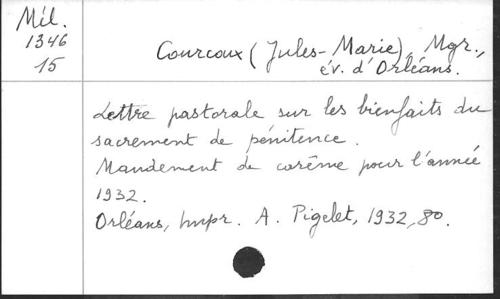 Mél.
1346
15
Courcoux (Jules-Marie), Mgr.,
év. d'Orléans.
Lettre pastorale sur les bienfaits du
sacrement de pénitence.
Mandement de carême pour l'année
1932.
Orléans, Impr. A. Pigelet, 1932, 8º.